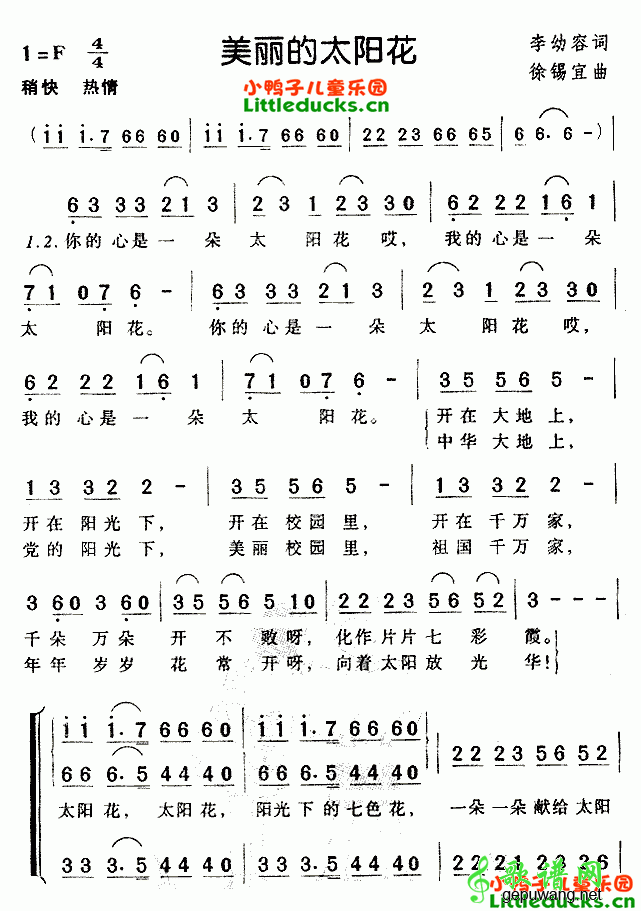 美丽的太阳花
1=F 4/4
李幼容词
稍快 热情
徐锡宜曲
小鸭子儿童乐园
Littleducks.cn
(i i i·7 66 60 | i i i·7 66 60 | 22 23 66 65 | 6 6·6 -)
63 33 21 3 | 2 3 1 23 30 | 62 22 16 1
1.2.你的心是一朵 太 阳花哎, 我的心是一朵
71 07 6 - | 63 33 21 3 | 23 1 23 30
太 阳花。 你的心是一朵 太 阳花哎,
62 22 16 1 | 71 07 6 - | 35 56 5 -
我的心是一朵 太 阳花。 开在大地上,
中华大地上,
13 32 2 - | 35 56 5 - | 23 32 3 -
开在阳光下, 开在校园里, 开在千万家,
党的阳光下, 美丽校园里, 祖国千万家,
3 60 3 60 | 35 56 5 10 | 22 23 56 52 | 3 - - -
千朵 万朵 开不败呀, 化作片片七彩霞。
年年 岁岁 花常开呀, 向着太阳放光华!
i i i·7 66 60 | i i i·7 66 60
22 23 56 52
66 6·5 44 40 | 66 6·5 44 40
太阳花, 太阳花, 阳光下的七色花, 一朵一朵献给太阳
33 3·5 44 40 | 33 3·5 44 40
小鸭子儿童乐园
歌谱网
gepuwang.net
Littleducks.cn